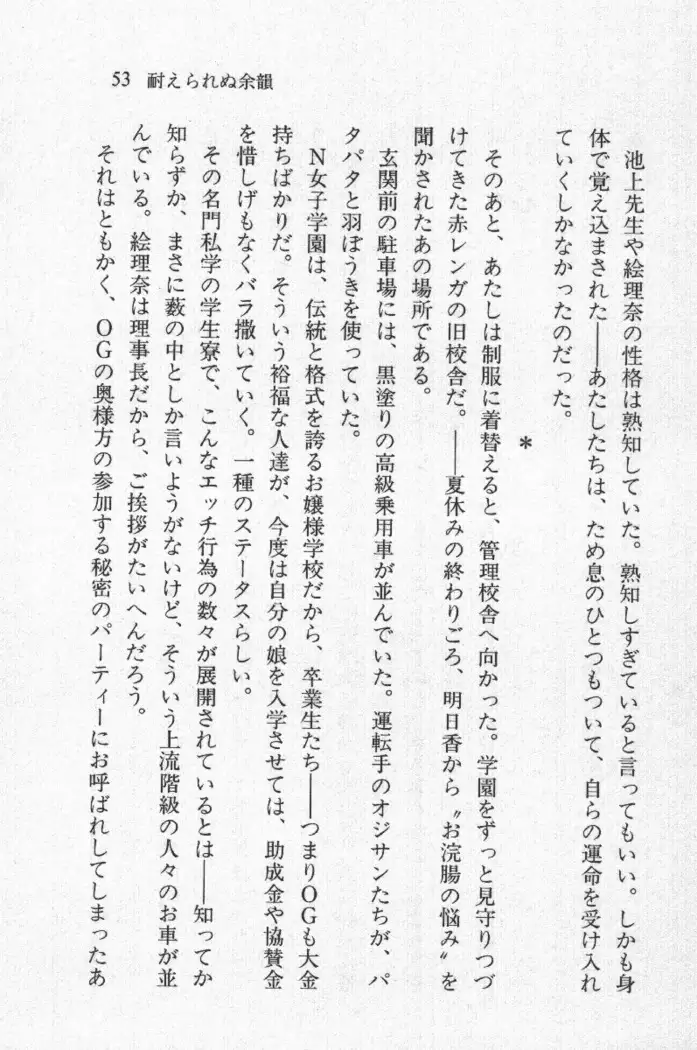 53 耐えられぬ余韻
池上先生や絵理奈の性格は熟知していた。熟知しすぎていると言ってもいい。しかも身
体で覚え込まされた――あたしたちは、ため息のひとつもついて、自らの運命を受け入れ
ていくしかなかったのだった。
*
そのあと、あたしは制服に着替えると、管理校舎へ向かった。学園をずっと見守りつづ
けてきた赤レンガの旧校舎だ。――夏休みの終わりごろ、明日香から〝お浣腸の悩み〟を
聞かされたあの場所である。
玄関前の駐車場には、黒塗りの高級乗用車が並んでいた。運転手のオジサンたちが、パ
タパタと羽ぼうきを使っていた。
N女子学園は、伝統と格式を誇るお嬢様学校だから、卒業生たち――つまりOGも大金
持ちばかりだ。そういう裕福な人達が、今度は自分の娘を入学させては、助成金や協賛金
を惜しげもなくバラ撒いていく。一種のステータスらしい。
その名門私学の学生寮で、こんなエッチ行為の数々が展開されているとは――知ってか
知らずか、まさに藪の中としか言いようがないけど、そういう上流階級の人々のお車が並
んでいる。絵理奈は理事長だから、ご挨拶がたいへんだろう。
それはともかく、OGの奥様方の参加する秘密のパーティーにお呼ばれしてしまったあ